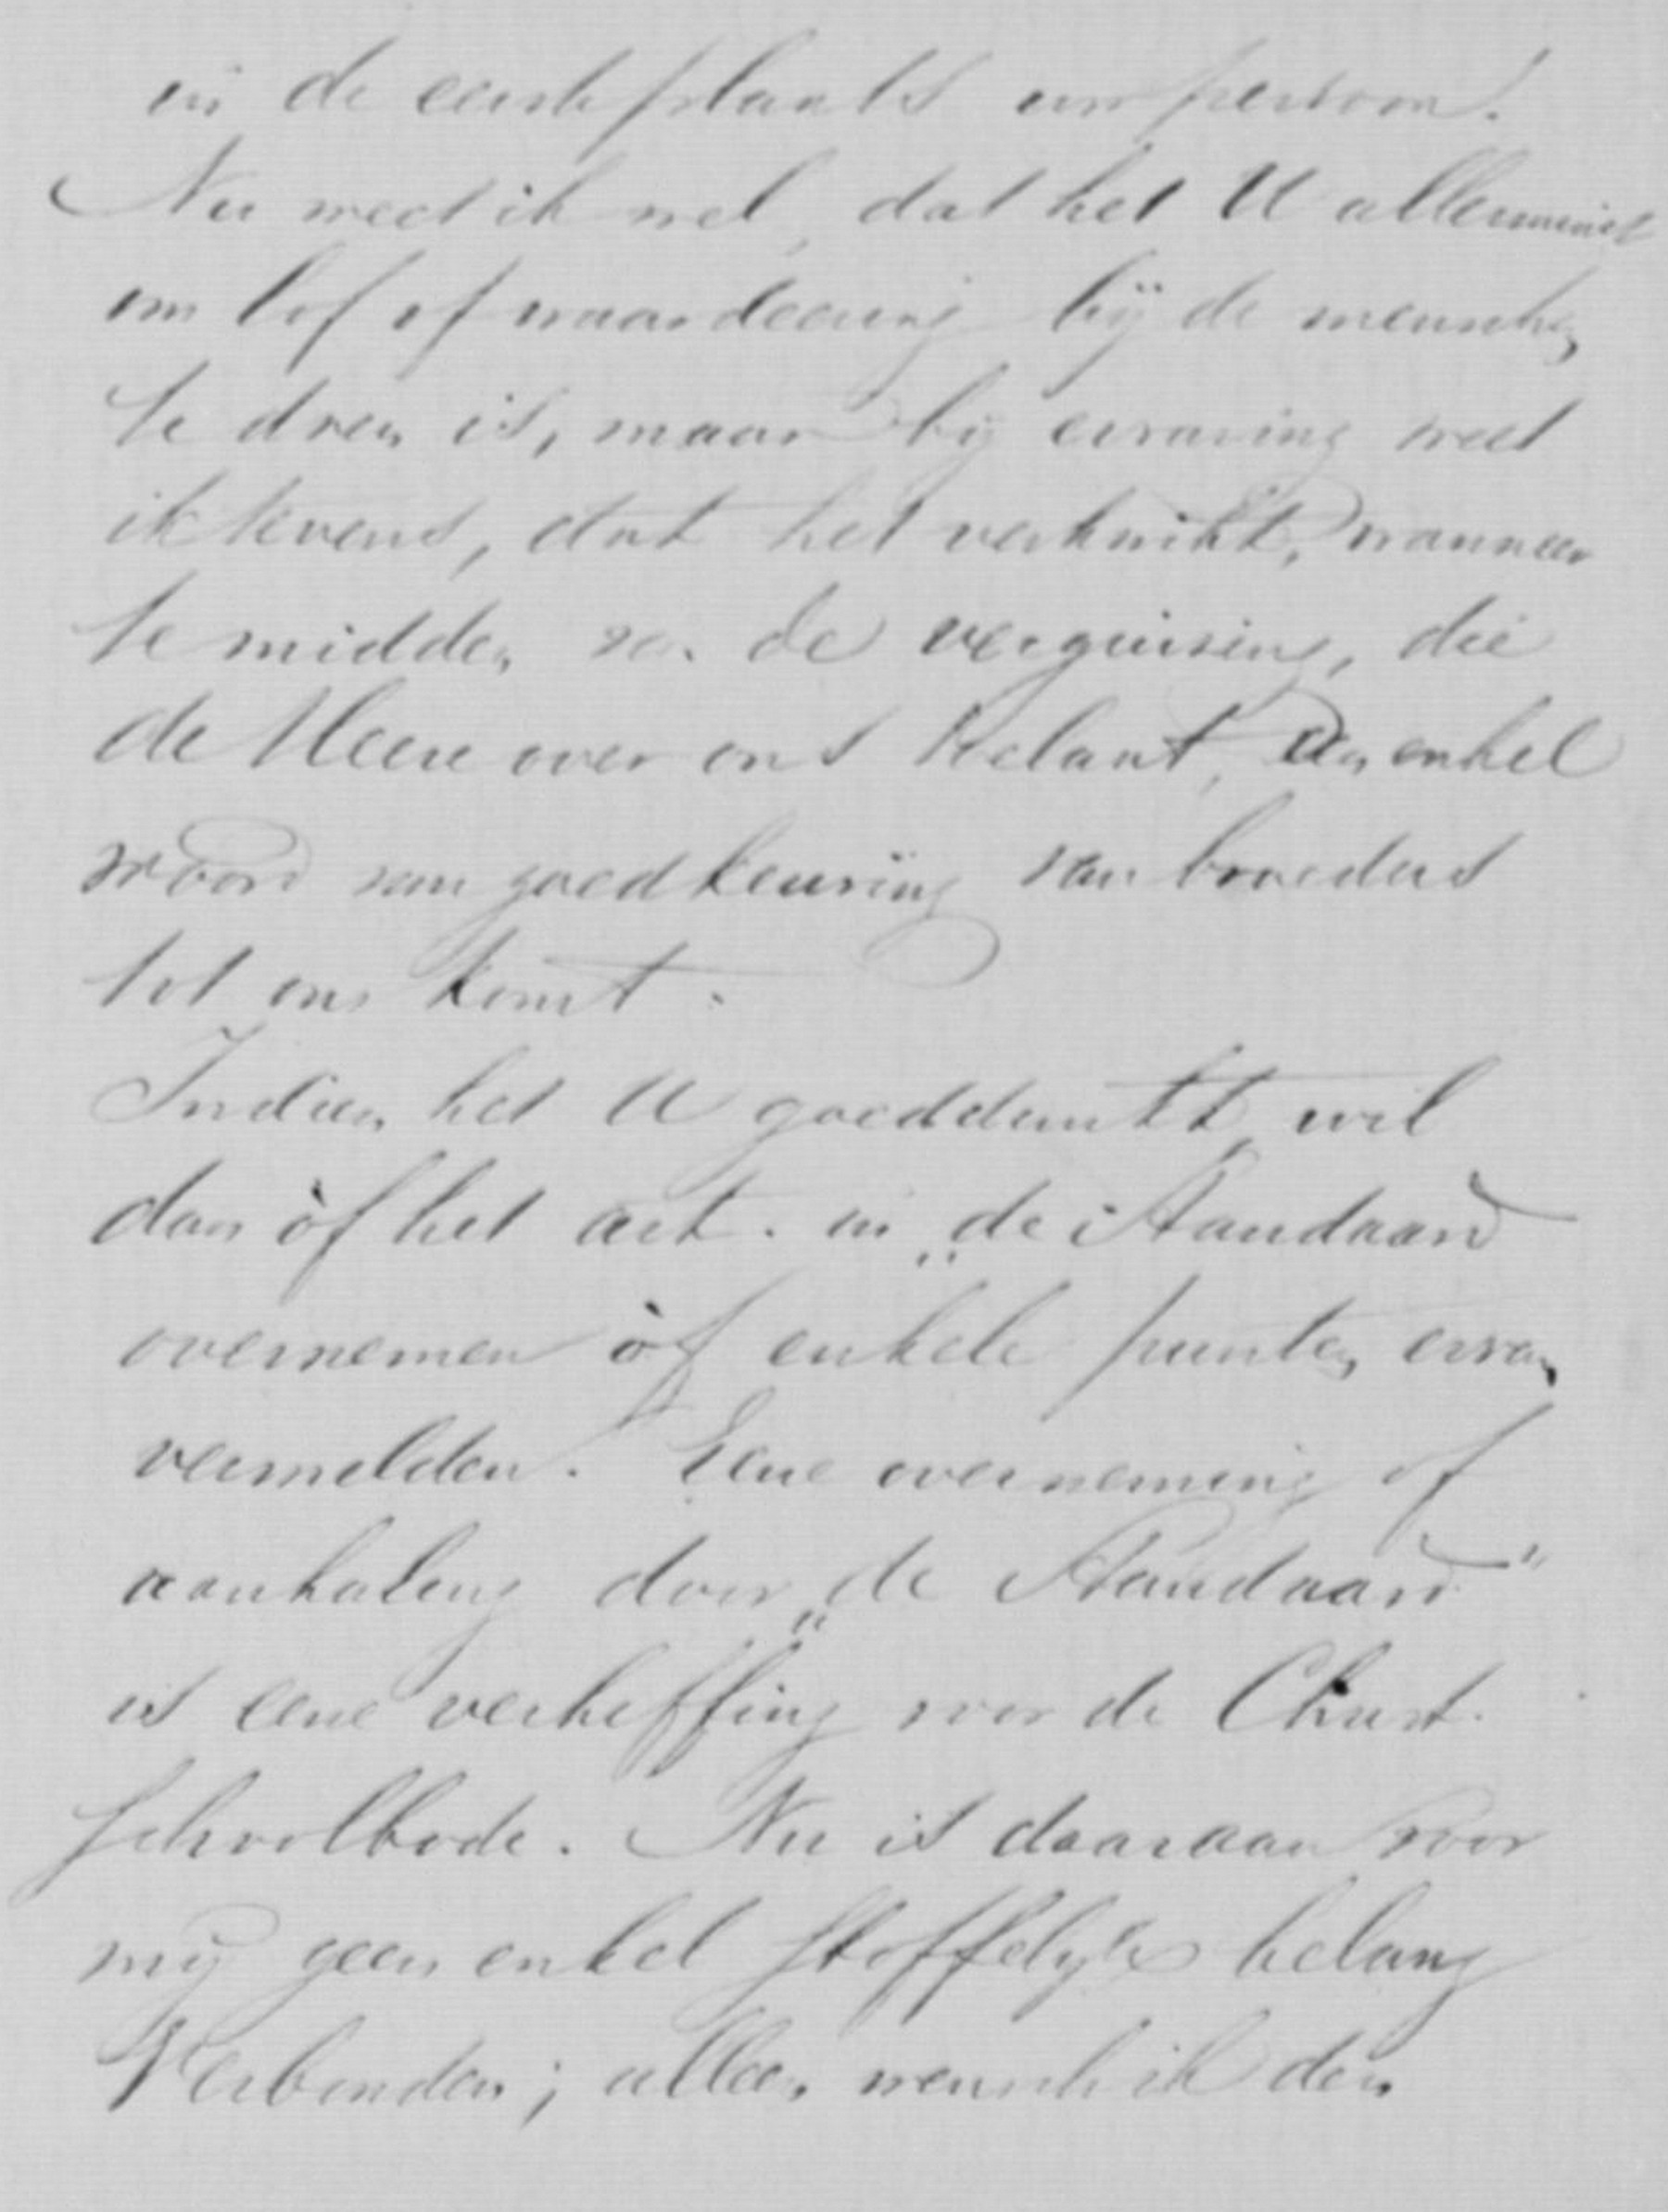 in de eerste plaats uw persoon.
Nu weet ik wel, dat het U allerminst
om lof of waardeering bij de menschen
te doen is, maar bij ervaring weet
ik tevens, dat het verkwikt, wanneer
te midden van de verguizing, die
de Heere over ons toelaat, een enkel
woord van goedkeuring van broeders
tot ons komt.
Indien het U goeddunkt, wil
dan òf het art. in „de Standaard
overnemen òf enkele punten ervan
vermelden. Eene overneming of
aanhaling door „de Standaard"
is eene verheffing voor de Christ.
Schoolbode. Nu is daaraan voor
mij geen enkel stoffelijk belang
verbonden; alleen wensch ik den